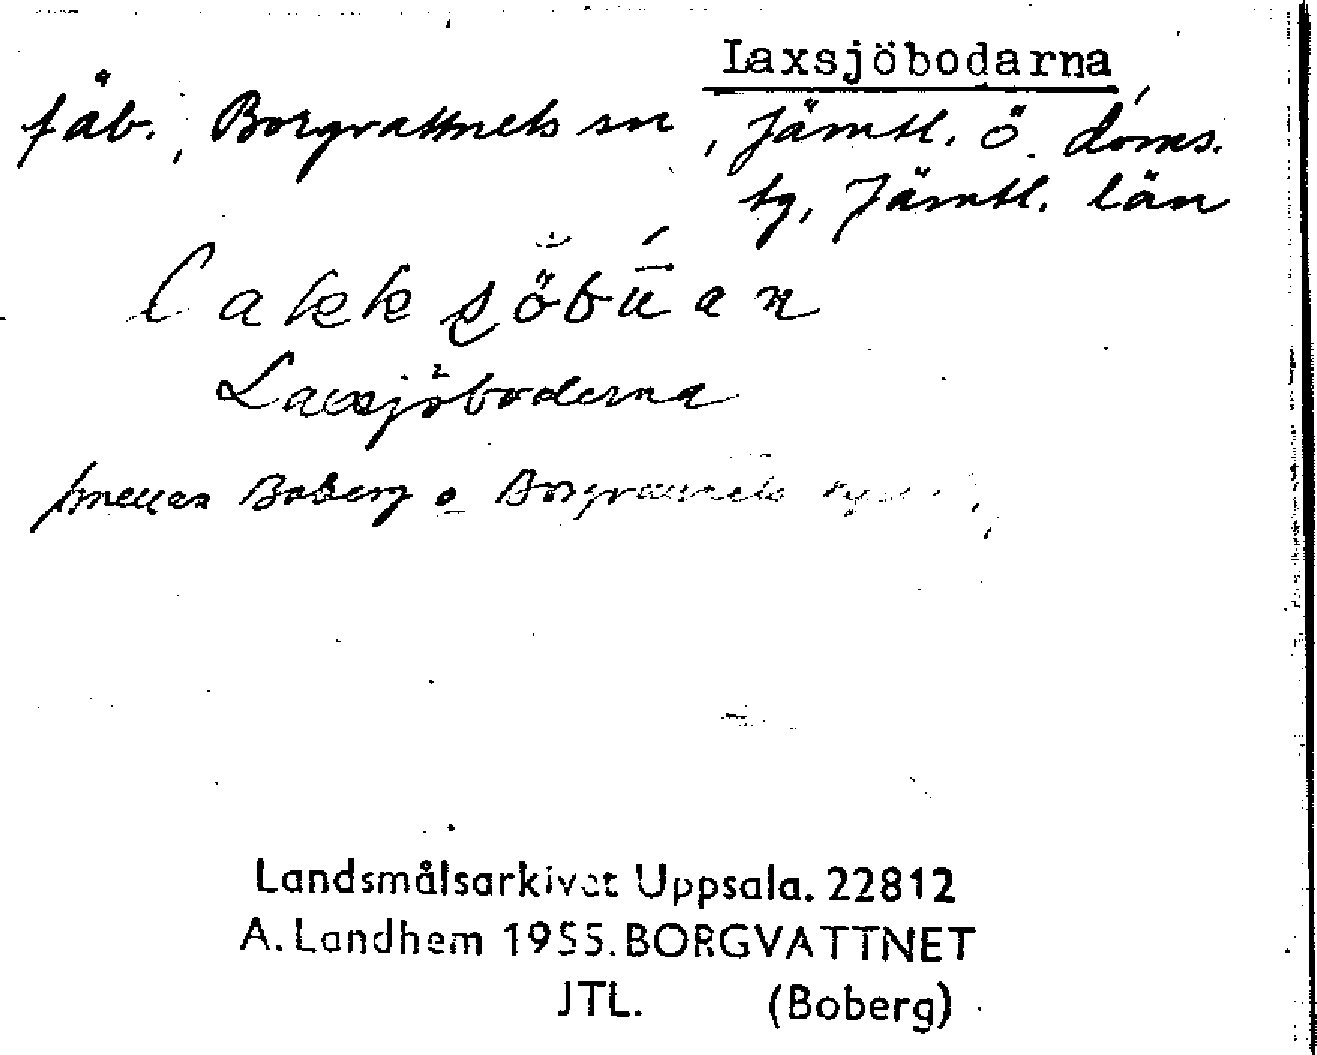 Laxsjöbodarna
fäb., Borgvattnets sn, Jämtl. ö. doms.
tg, Jämtl. län
lakksjöbūan
Laxsjöboderna
mellan Boberg o Borgvattnets
Landsmålsarkivet Uppsala. 22812
A. Landhem 1955. BORGVATTNET
JTL. (Boberg)